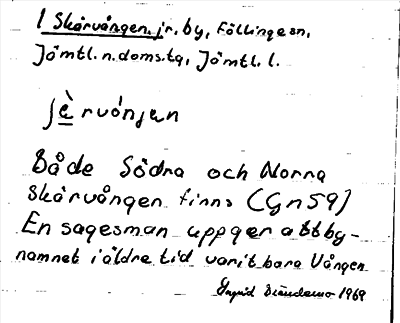 1 Skärvången jr. by, Föllinge sn,
Jämtl. n. doms. tg, Jämtl. l.
ʃè̱rvóŋen
Både Södra och Norra
Skärvången finns (Gn 59)
En sagesman uppger att by-
namnet i äldre tid varit bara Vången
Ingrid 1969